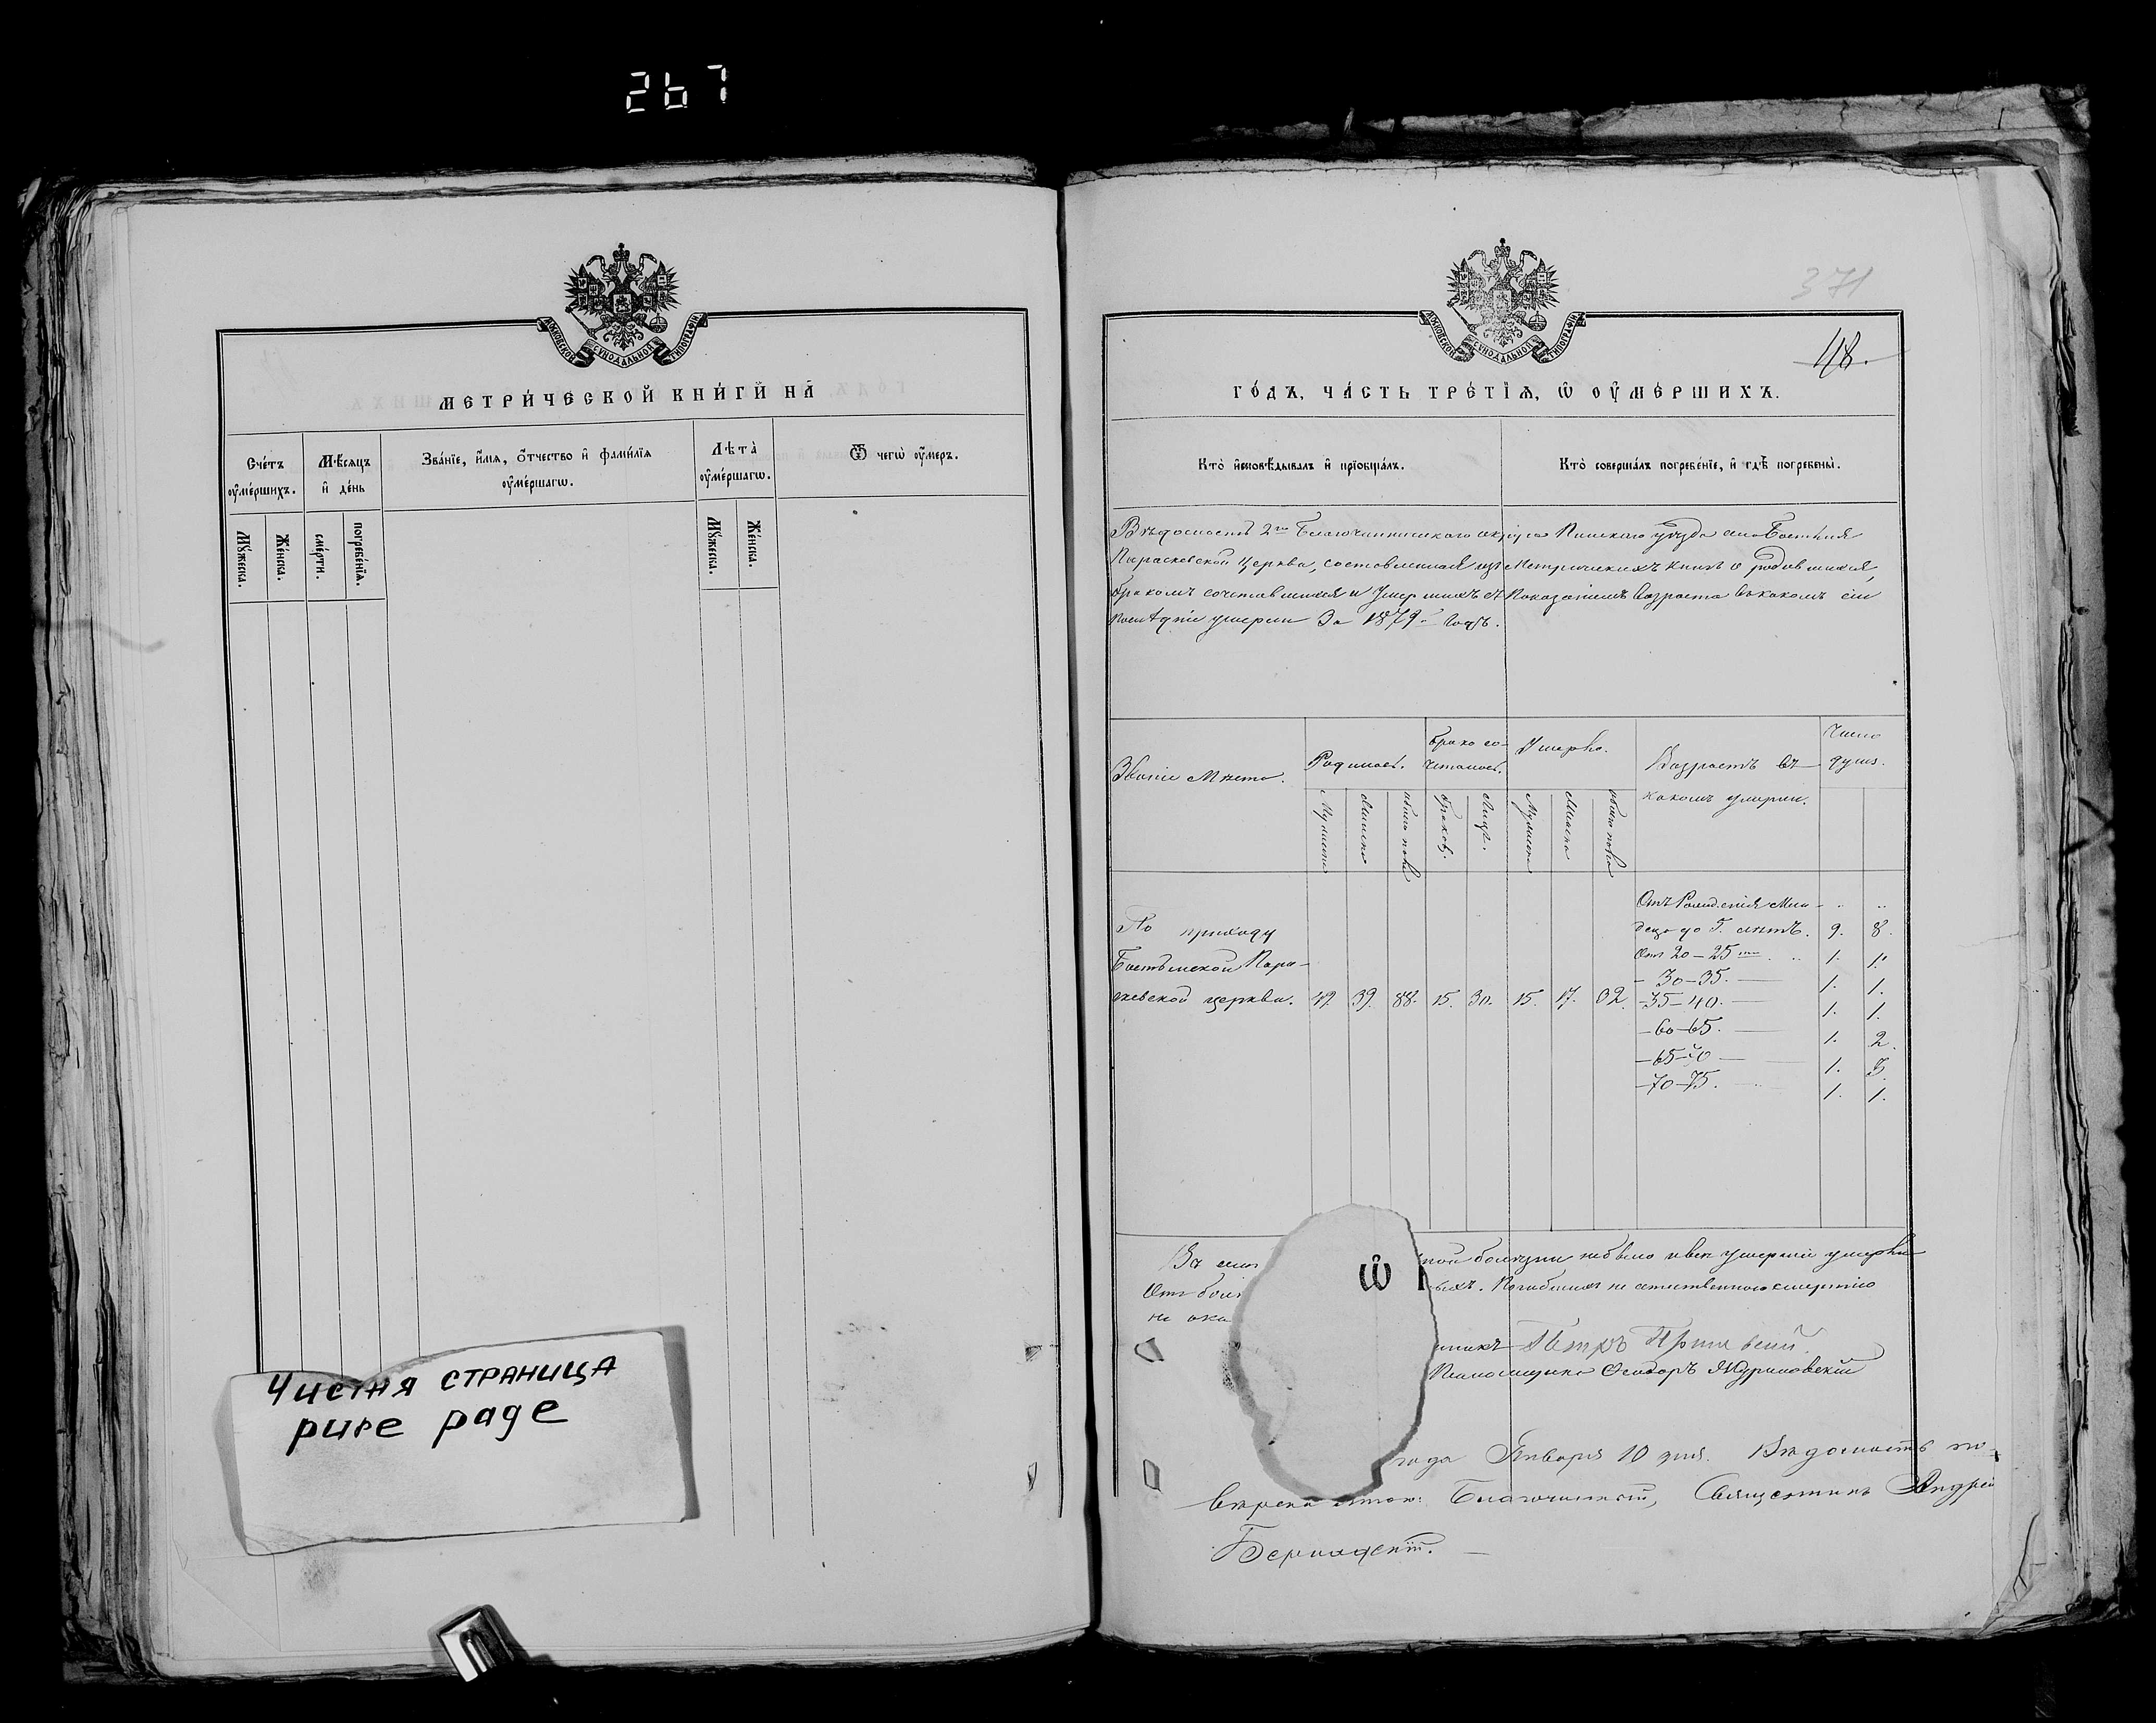 267
МОСКОВСКОЙ СѴНОДАЛЬНОЙ ТИПОГРАФІИ
МЕТРИ́ЧЕСКОЙ КНИ́ГИ НА̀
Сче́тъ оу҆ме́ршихъ.
Мѣ́сяцъ и҆ де́нь
Зва́нїе, и҆́мѧ, ѻ҆́тчество и҆ фами́лїѧ оу҆ме́ршагѡ.
Лѣ̑та̀ оу҆ме́ршагѡ.
Ѿ чегѡ̀ оу҆́меръ.
Мꙋ́жеска.
Же́нска.
сме́рти.
погребе́нїѧ.
Мꙋ́жеска.
Же́нска.
Чистая страница
pure page
371
МОСКОВСКОЙ СѴНОДАЛЬНОЙ ТИПОГРАФІИ
48.
ГО́ДЪ, ЧА́СТЬ ТРЕ́ТЇѦ, Ѡ҆ ОУ҆МЕ́РШИХЪ.
Кто̀ и҆сповѣ́дывалъ и҆ прїобща́лъ.
Кто̀ соверша́лъ погребе́нїе, и҆ гдѣ̀ погребены̀.
Вѣдомость 2го Благочинническаго округа Пинскаго уѣзда
Параскевской Церкви, составленная изъ Метрическихъ книгъ о родившихся,
бракомъ сочетавшихся и Умершихъ съ Показаніемъ Возраста въ какомъ сіи
послѣдніе умерли За 1879й Годъ.
Званіе Мѣста.
Родилось.
Брако со-
четалось.
Умерло.
Возрастъ въ
какомъ умерли.
Число
душъ.
Мужеска
Женска
обоего пола
браковъ.
Лицъ.
Мужеска
Женска
обоего пола
По приходу
Параскевской церкви.
49. 39. 88. 15. 30. 15. 17. 32
Отъ Рожденія Мла-
денца до 5. лѣтъ. 9. 8.
Отъ 20–25 1. 1.
– 30–35. 1. 1.
– 35–40. 1. 1.
– 60–65. 1. 2.
– 65–70 1. 3.
– 70–75. 1. 1.
Въ
ной болѣзни не было и всѣ умершіе умерли
Отъ бол
ыхъ. Погибшихъ не естественною смертію
не ока
Ѡ҆
никъ Петръ
Псаломщикъ Ѳеодоръ Журановскій
года Января 10 дня. Вѣдомость по-
вѣрена мною: Благочинный, Священникъ Андрей